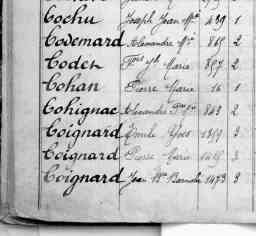 Cochu Joseph Jean Mie 439 1
Codemard Alexandre Mie 865 2
Codet Fois Marie 857 2
Cohan Pierre Marie 16 1
Cohignac Alexandre 843 2
Coignard Emile Yves 1359 3
Coignard Pierre Marie 3
Coignard Jean Bte 1473 3